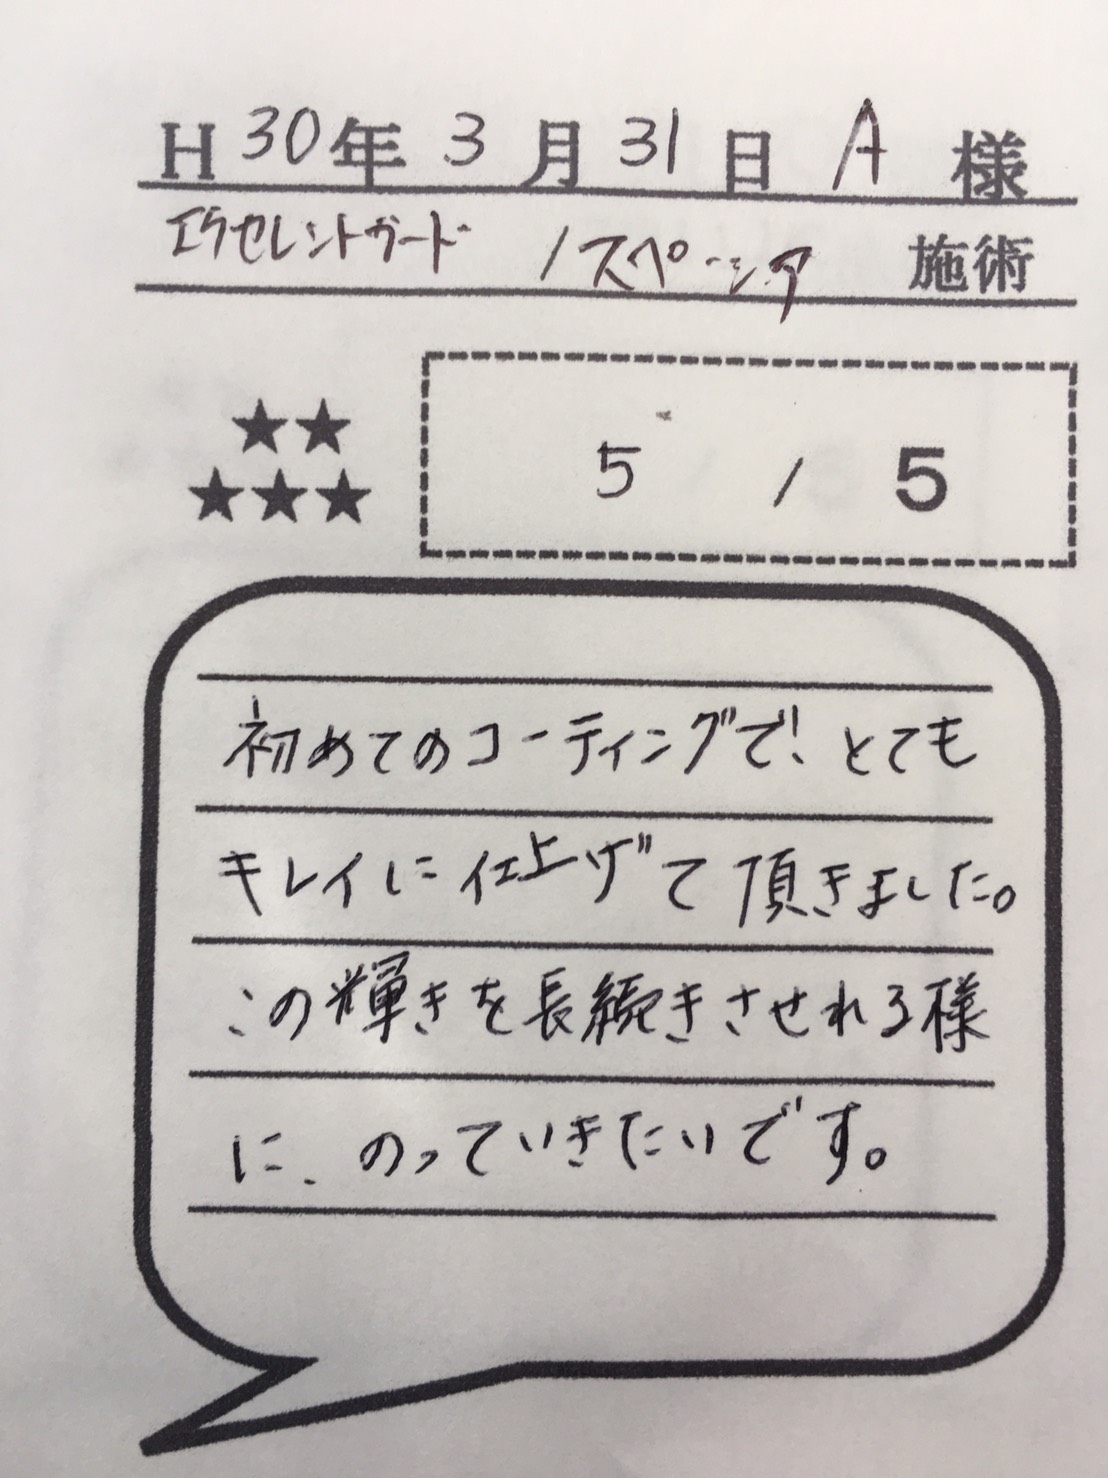 H 30年 3月 31日 A 様
エクセレントガード / スペーシア 施術
★★
★★★
5 / 5
初めてのコーティングで!とても
キレイに仕上げて頂きました。
この輝きを長続きさせれる様
に、のっていきたいです。